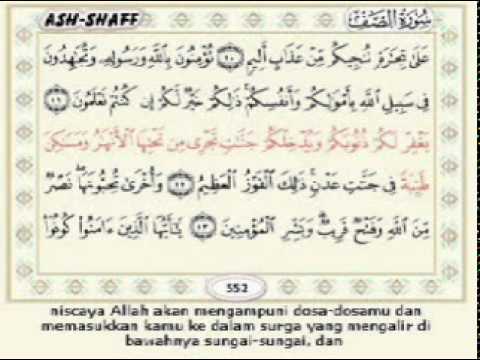 ASH-SHAFF
سُورَةُ الصَّفِّ
عَلَىٰ تِجَٰرَةٍ تُنجِيكُم مِّنْ عَذَابٍ أَلِيمٍ ١٠ تُؤْمِنُونَ بِٱللَّهِ وَرَسُولِهِۦ وَتُجَٰهِدُونَ
فِى سَبِيلِ ٱللَّهِ بِأَمْوَٰلِكُمْ وَأَنفُسِكُمْ ۚ ذَٰلِكُمْ خَيْرٌ لَّكُمْ إِن كُنتُمْ تَعْلَمُونَ ١١
يَغْفِرْ لَكُمْ ذُنُوبَكُمْ وَيُدْخِلْكُمْ جَنَّٰتٍ تَجْرِى مِن تَحْتِهَا ٱلْأَنْهَٰرُ وَمَسَٰكِنَ
طَيِّبَةً فِى جَنَّٰتِ عَدْنٍ ۚ ذَٰلِكَ ٱلْفَوْزُ ٱلْعَظِيمُ ١٢ وَأُخْرَىٰ تُحِبُّونَهَا ۖ نَصْرٌ
مِّنَ ٱللَّهِ وَفَتْحٌ قَرِيبٌ ۗ وَبَشِّرِ ٱلْمُؤْمِنِينَ ١٣ يَٰٓأَيُّهَا ٱلَّذِينَ ءَامَنُوا۟ كُونُوٓا۟
552
niscaya Allah akan mengampuni dosa-dosamu dan
memasukkan kamu ke dalam surga yang mengalir di
bawahnya sungai-sungai, dan